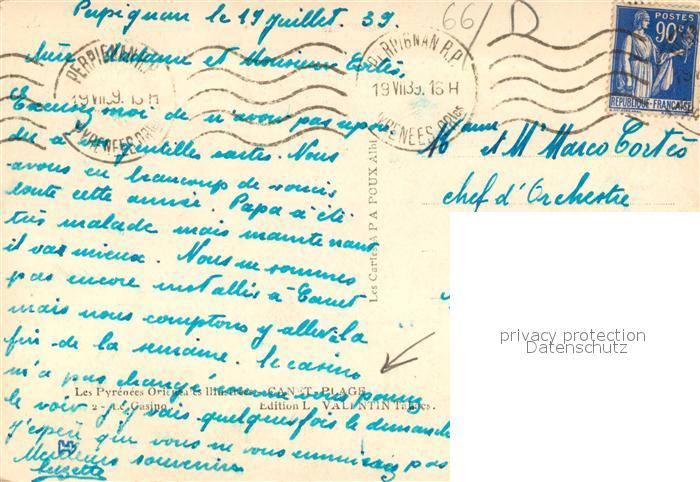 Perpignan le 19 Juillet. 39.
66/D
Madame et Monsieur Cortès,
Excusez moi de n'avoir pas répon
du à vos gentilles cartes. Nous
avons eu beaucoup de soucis
toute cette année. Papa a été
très malade mais maintenant
il va mieux. Nous ne sommes
pas encore installés à Canet
mais nous comptons y aller à la
fin de la semaine. Le casino
n'a pas changé vous pouvez
le voir, j'y vais quelques fois le dimanche
J'espère que vous ne vous ennuyez pas
Meilleurs souvenirs
Suzette
PERPIGNAN R.P.
19 VII 39. 16 H
PYRENEES ORles
PERPIGNAN R.P
19 VII 39. 16 H
PYRENEES ORles
POSTES
90c
REPUBLIQUE FRANÇAISE
Mme et Mr Marco Cortès
chef d'Orchestre
Les Cartes A P A POUX Albi
Les Pyrénées Orientales Illustrées - CANET-PLAGE
2 - Le Casino. Edition L. VALENTIN Tabacs.
privacy protection
Datenschutz